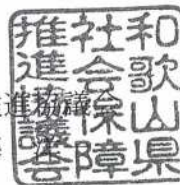 和歌山県
社会保障
推進協議会
進協議